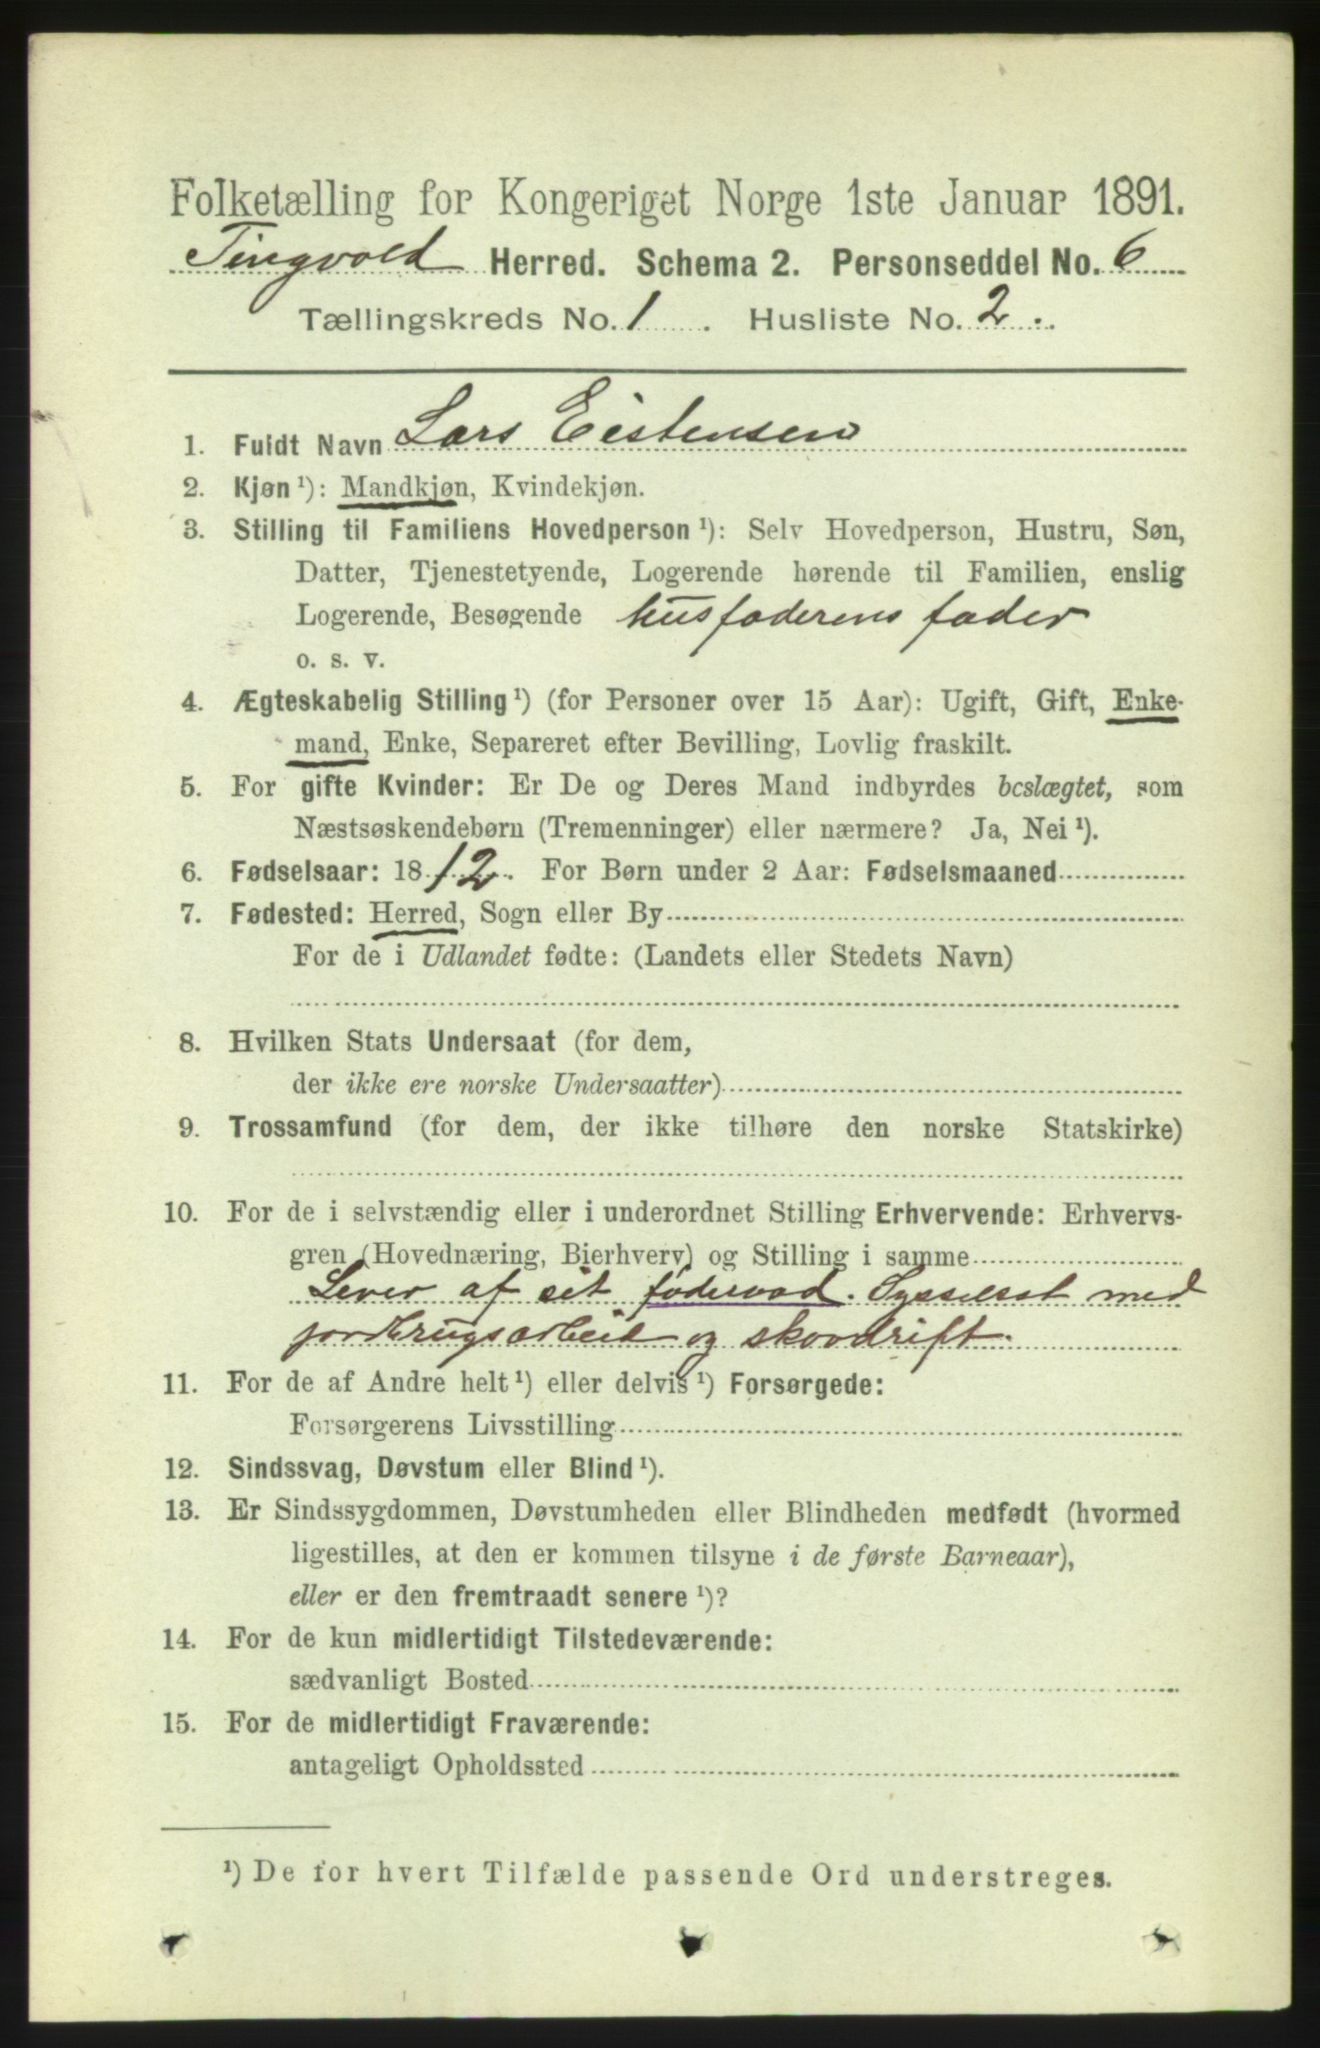 Folketælling for Kongeriget Norge 1ste Januar 1891.
Tingvold Herred. Schema 2. Personseddel No. 6
Tællingskreds No. 1 . Husliste No. 2 .
1. Fuldt Navn Lars Eistensen
2. Kjøn ¹): Mandkjøn, Kvindekjøn.
3. Stilling til Familiens Hovedperson ¹): Selv Hovedperson, Hustru, Søn,
Datter, Tjenestetyende, Logerende hørende til Familien, enslig
Logerende, Besøgende husfaderens fader
o. s. v.
4. Ægteskabelig Stilling ¹) (for Personer over 15 Aar): Ugift, Gift, Enke-
mand, Enke, Separeret efter Bevilling, Lovlig fraskilt.
5. For gifte Kvinder: Er De og Deres Mand indbyrdes beslægtet, som
Næstsøskendebørn (Tremenninger) eller nærmere? Ja, Nei ¹).
6. Fødselsaar: 1812. For Børn under 2 Aar: Fødselsmaaned
7. Fødested: Herred, Sogn eller By
For de i Udlandet fødte: (Landets eller Stedets Navn)
8. Hvilken Stats Undersaat (for dem,
der ikke ere norske Undersaatter)
9. Trossamfund (for dem, der ikke tilhøre den norske Statskirke)
10. For de i selvstændig eller i underordnet Stilling Erhvervende: Erhvervs-
gren (Hovednæring, Bierhverv) og Stilling i samme
Lever af sit føderaad. Sysselsat med
jordbrugsarbeid og skovdrift.
11. For de af Andre helt ¹) eller delvis ¹) Forsørgede:
Forsørgerens Livsstilling
12. Sindssvag, Døvstum eller Blind ¹).
13. Er Sindssygdommen, Døvstumheden eller Blindheden medfødt (hvormed
ligestilles, at den er kommen tilsyne i de første Barneaar),
eller er den fremtraadt senere ¹)?
14. For de kun midlertidigt Tilstedeværende:
sædvanligt Bosted
15. For de midlertidigt Fraværende:
antageligt Opholdssted
¹) De for hvert Tilfælde passende Ord understreges.